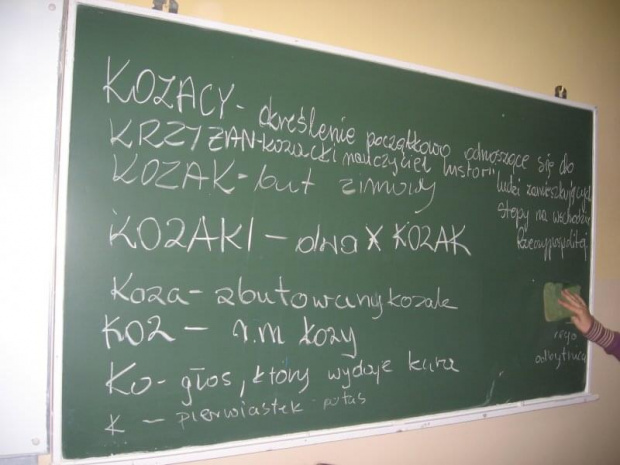 KOZACY - określenie początkowo odnoszące się do
ludzi zamieszkujących
stepy na wschodzie
Rzeczypospolitej
KRZYŻAN - kozacki nauczyciel historii
KOZAK - but zimowy
KOZAKI - dwa X KOZAK
Koza - zbutowany kozak
KOZ - r.m kozy
Ko - głos, który wydaje kura
K - pierwiastek potas